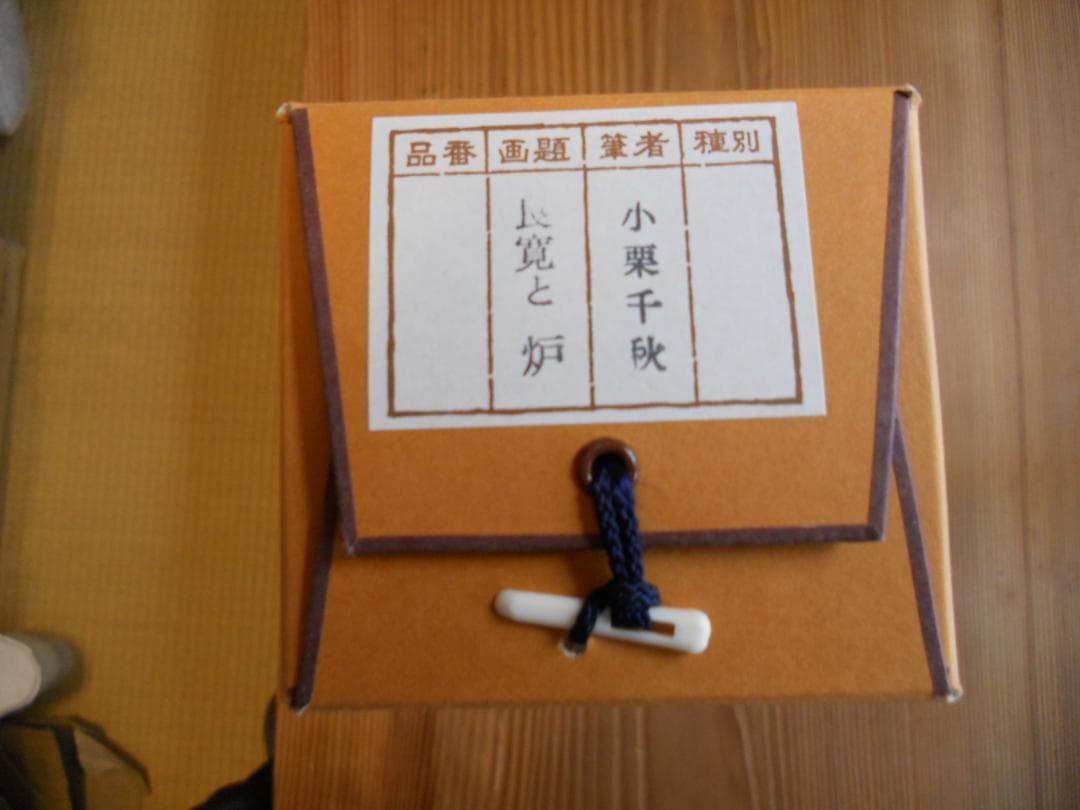 品番 画題 筆者 種別
良寛と 炉
小栗千秋